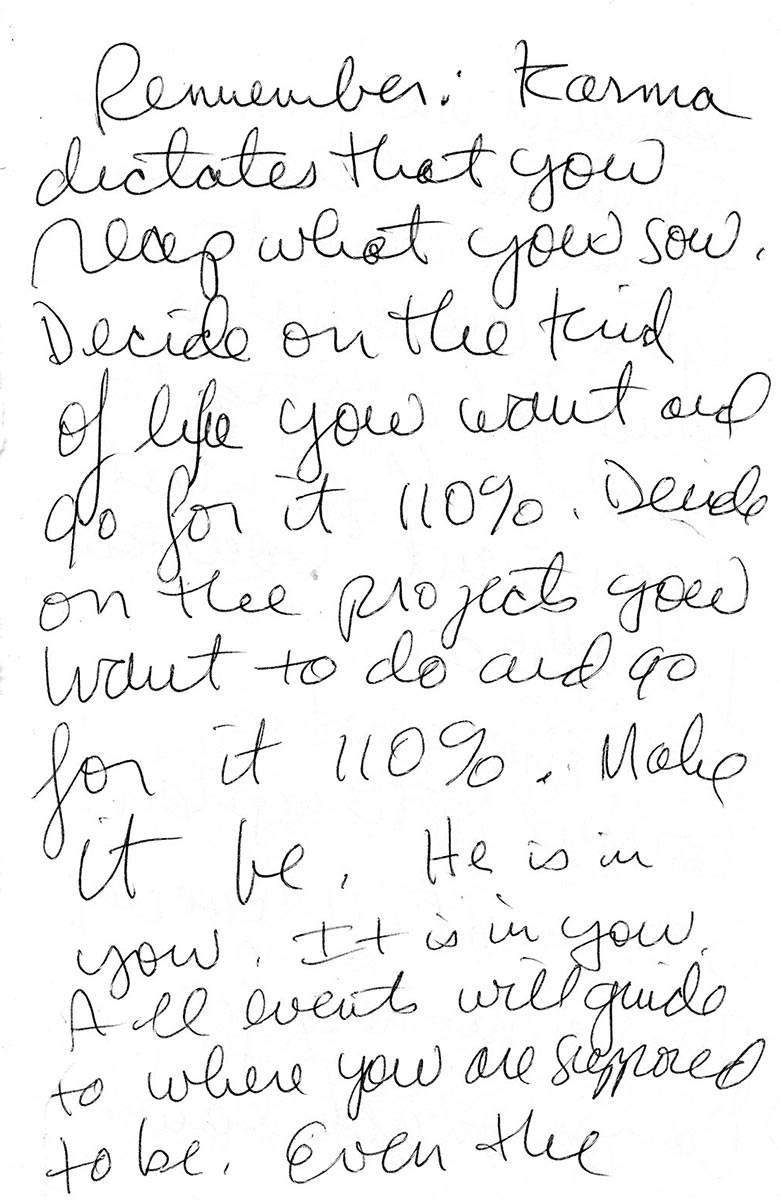 Remember: Karma
dictates that you
reap what you sow.
Decide on the kind
of life you want and
go for it 110%. Decide
on the projects you
want to do and go
for it 110%. Make
it be. He is in
you. It is in you.
All events will guide
to where you are supposed
to be. Even the